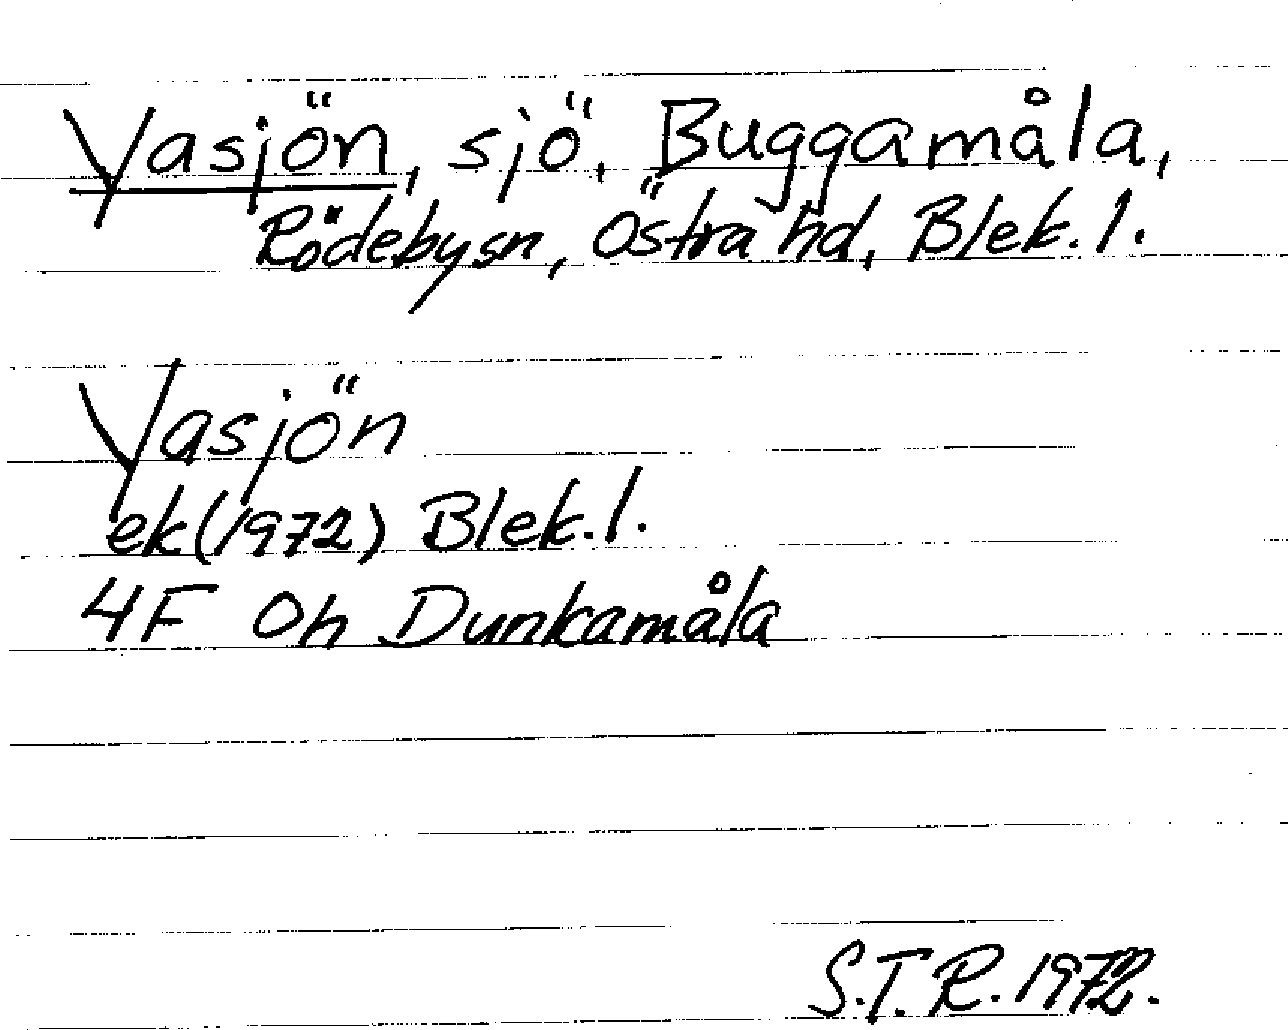 Yasjön, sjö, Buggamåla,
Rödebysn, Östra hd, Blek. l.
Yasjön
ek (1972) Blek. l.
4F Oh Dunkamåla
S.T.R. 1972.